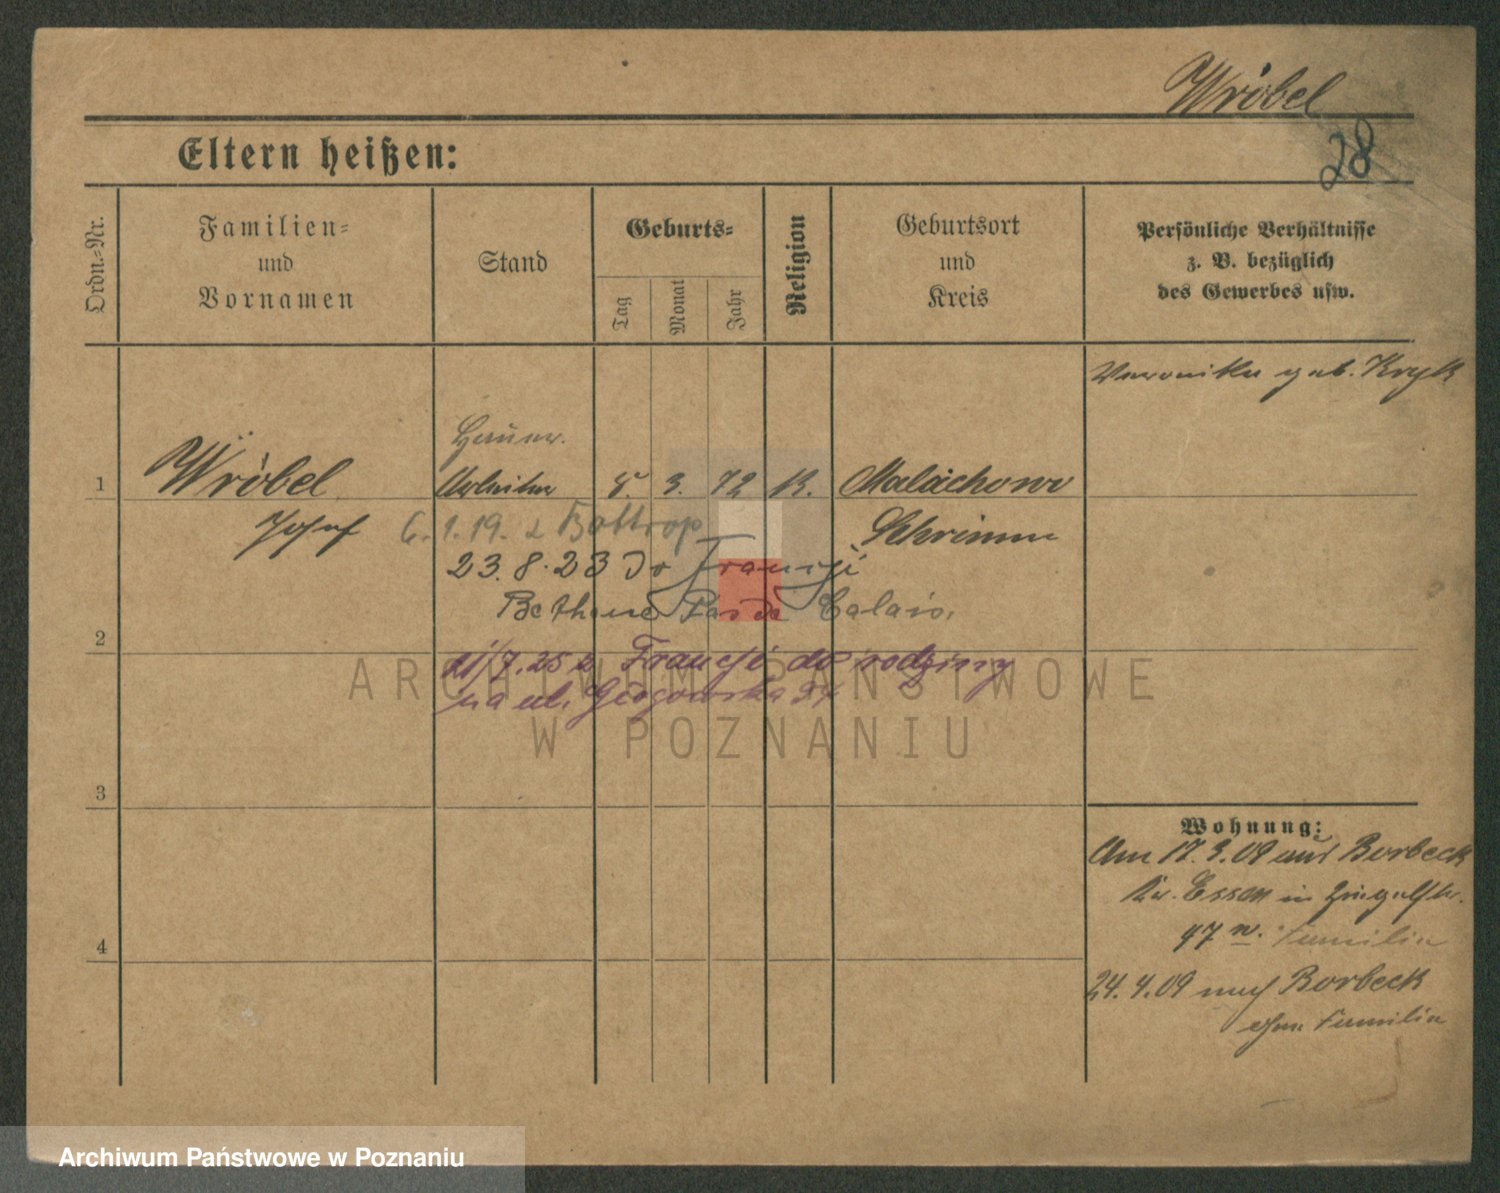 Wróbel
28
Eltern heißen:
Ordn.-Nr.
Familien-
und
Vornamen
Stand
Geburts-
Tag
Monat
Jahr
Religion
Geburtsort
und
Kreis
Persönliche Verhältnisse
z. B. bezüglich
des Gewerbes usw.
Veronika geb. Kryk
Hauer.
1 Wróbel Arbeiter 8. 3. 72 K. Malachowo
Josef 6. 1. 19. z Bottrop Schrimm
23. 8. 23 do Francji
Bethune Pas de Calais.
2
21/7. 25 z Francji do rodziny
na ul. Głogowska
ARCHIWUM PAŃSTWOWE
W POZNANIU
3
Wohnung:
Am 17. 3. 09 aus Borbeck
Kr. Essen in
97 n. Familie
4
24. 4. 09 nach Borbeck
ohne Familie
Archiwum Państwowe w Poznaniu